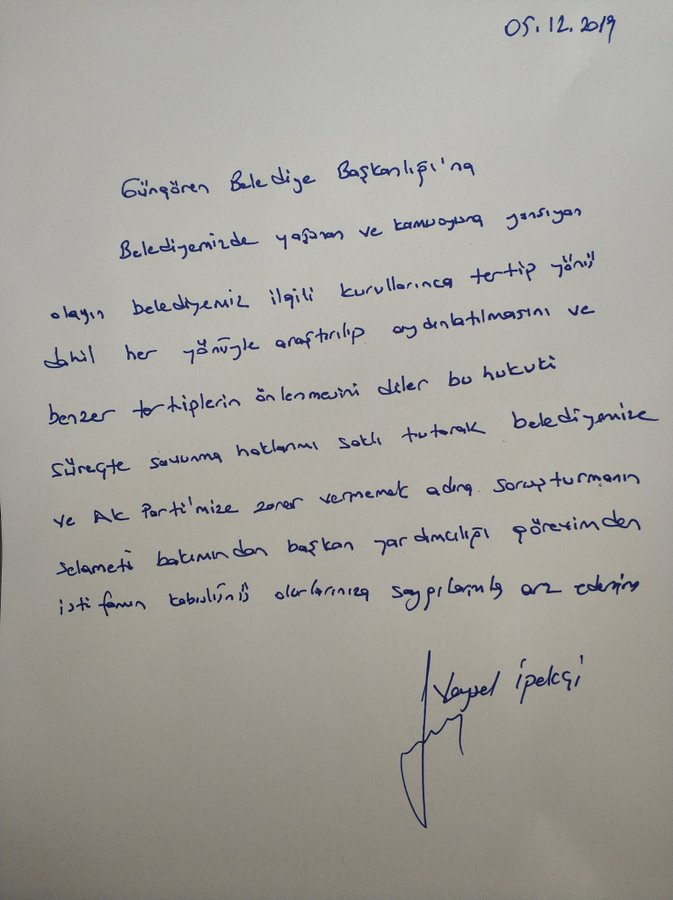 05.12.2019
Güngören Belediye Başkanlığı'na
Belediyemizde yaşanan ve kamuoyuna yansıyan
olayın belediyemiz ilgili kurullarınca tertip yönü
dahil her yönüyle araştırılıp aydınlatılmasını ve
benzer tertiplerin önlenmesini diler bu hukuki
süreçte savunma haklarımı saklı tutarak belediyemize
ve AK Parti'mize zarar vermemek adına soruşturmanın
selameti bakımından başkan yardımcılığı görevimden
istifamın kabulünü olurlarınıza saygılarımla arz ederim
Veysel İpekçi